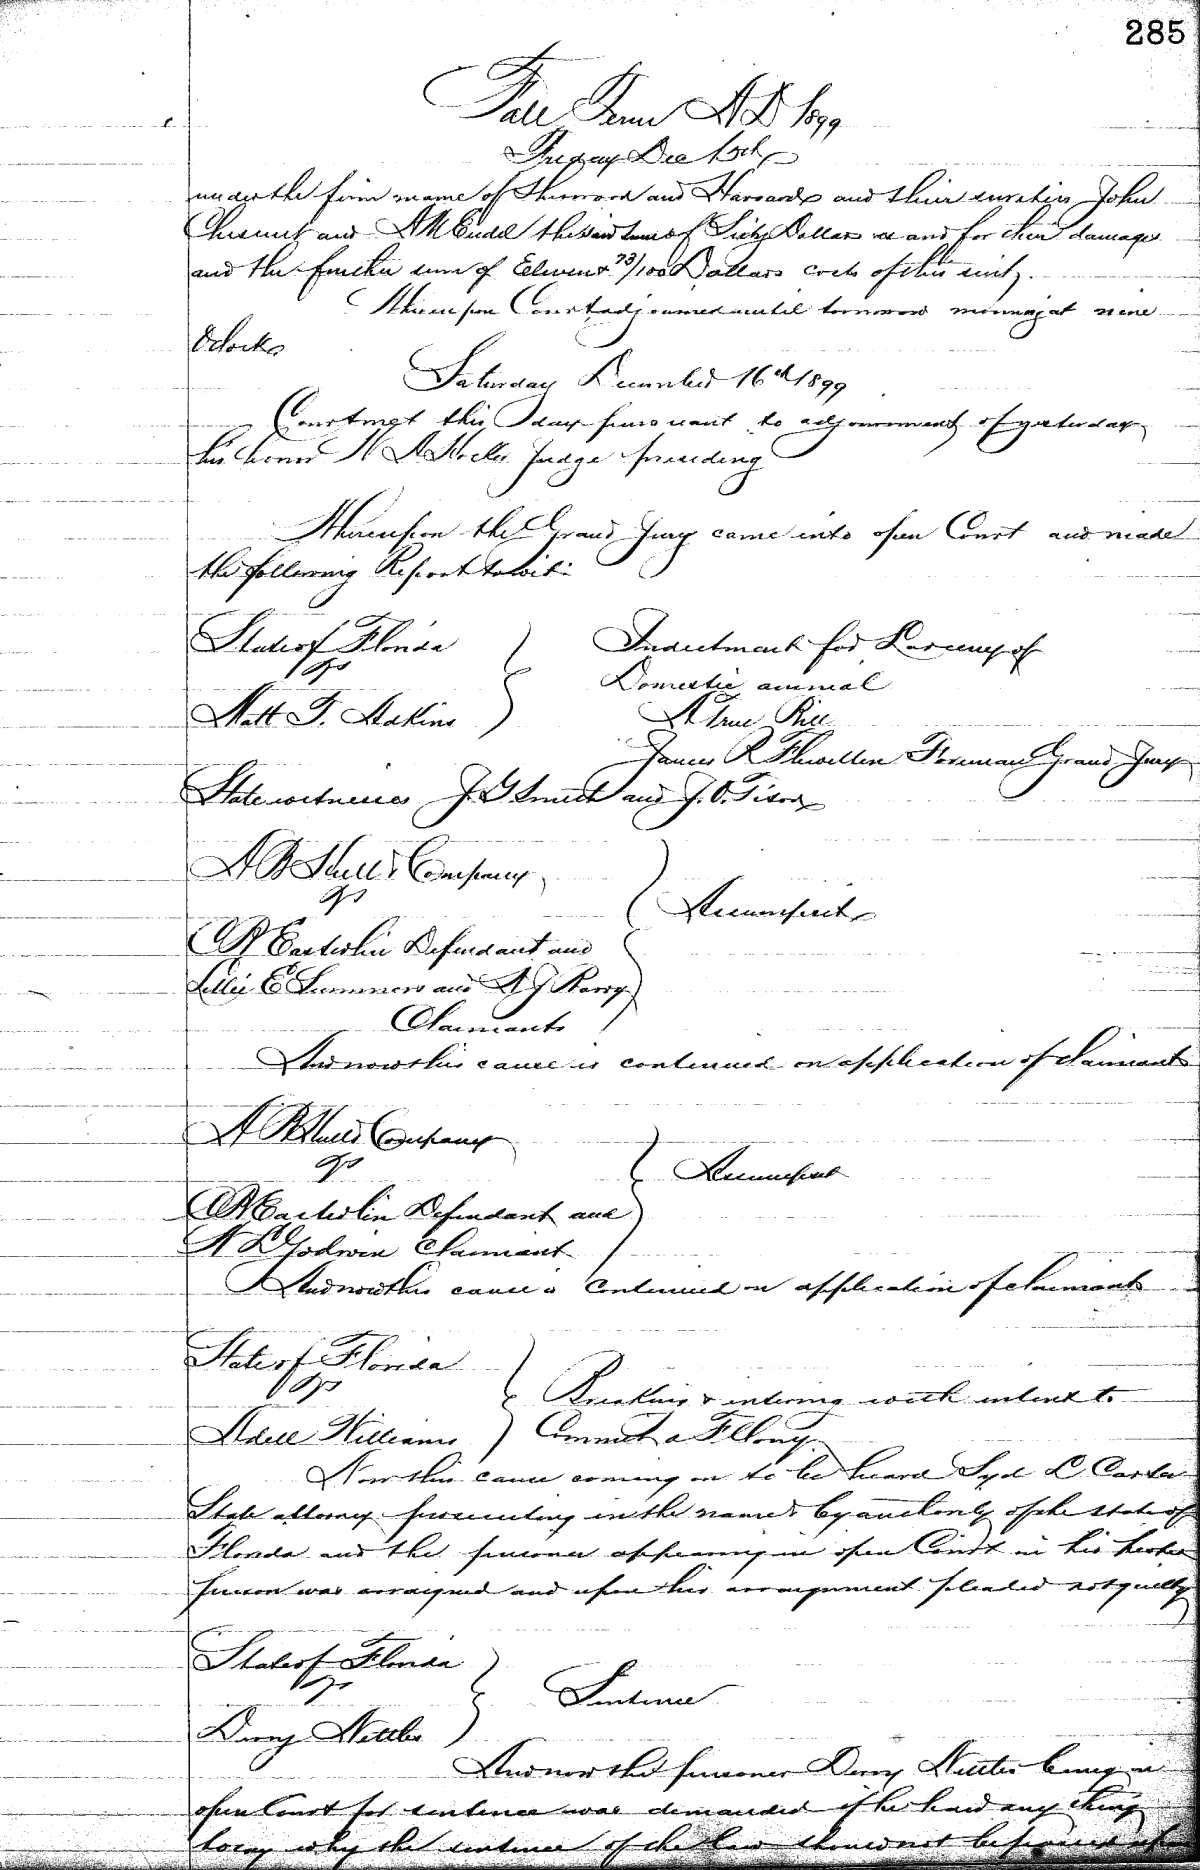 285
Fall Term A D 1899
Friday Dec 15th
under the firm name of Sherrard and Harvard and their sureties John
Chesnut and A M Cudd the said sum of Sixty Dollars as and for their damages
and the further sum of Eleven & 73/100 Dollars costs of this suit.
Thereupon Court adjourned until tomorrow morning at nine
Oclock
Saturday December 16th 1899
Court met this day pursuant to adjournment of yesterday
his honor W A Hocker Judge presiding
Thereupon the Grand Jury came into open Court and made
the following Report towit:
State of Florida
vs
Indictment for Larceny of
Domestic animal
Matt F. Adkins
A True Bill
James R Flewellen Foreman Grand Jury
State witnesses J. G. Smith and J. O.
A B Hull & Company
vs
Assumpsit
C R Carterlin Defendant and
Lillie E Summers and A J Barry
Claimants
And now this cause is continued on application of claimants
A B Hull & Company
vs
Assumpsit
C R Carterlin Defendant and
Godwin Claimant
And now this cause is continued on application of claimant
State of Florida
vs
Breaking & entering with intent to
Adell Williams
Commit a Fellony
Now this cause coming on to be heard Syd L Carter
State attorney prosecuting in the name & by authority of the State of
Florida and the prisoner appearing in open Court in his proper
person was arraigned and upon his arraignment pleaded not guilty
State of Florida
vs
Sentence
Derry Nettles
And now the prisoner Derry Nettles being in
open Court for sentence was demanded if he had any thing
to say why the sentence of the law should not be pronounced